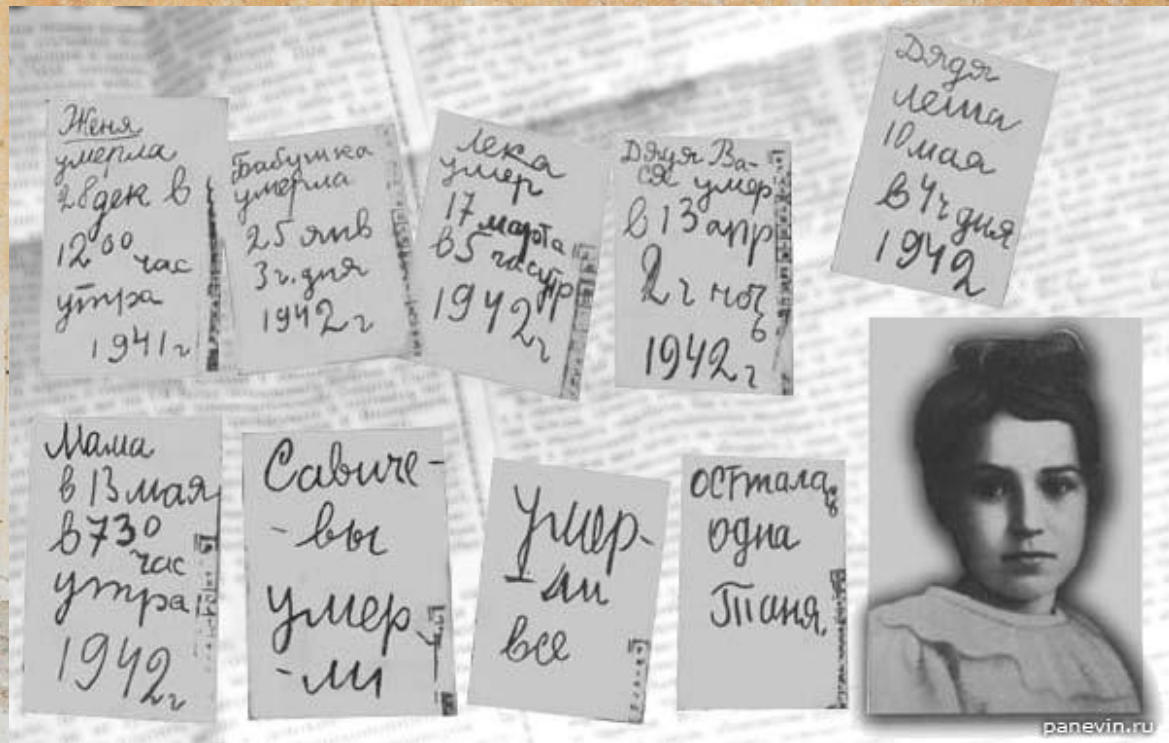 Женя
умерла
28 дек в
12 00 час
утра
1941 г
Бабушка
умерла
25 янв
3 ч. дня
1942 г
Лека
умер
17 марта
в 5 час утр
1942 г
Дядя Ва-
ся умер
в 13 апр
2 ч ноч
ь
1942 г
Дядя
Леша
10 мая
в 4 ч дня
1942
Мама
в 13 мая
в 730
час
утра
1942 г
Савиче-
-вы
умер
-ли
Умер-
-ли
все
Осталась
одна
Таня.
panevin.ru